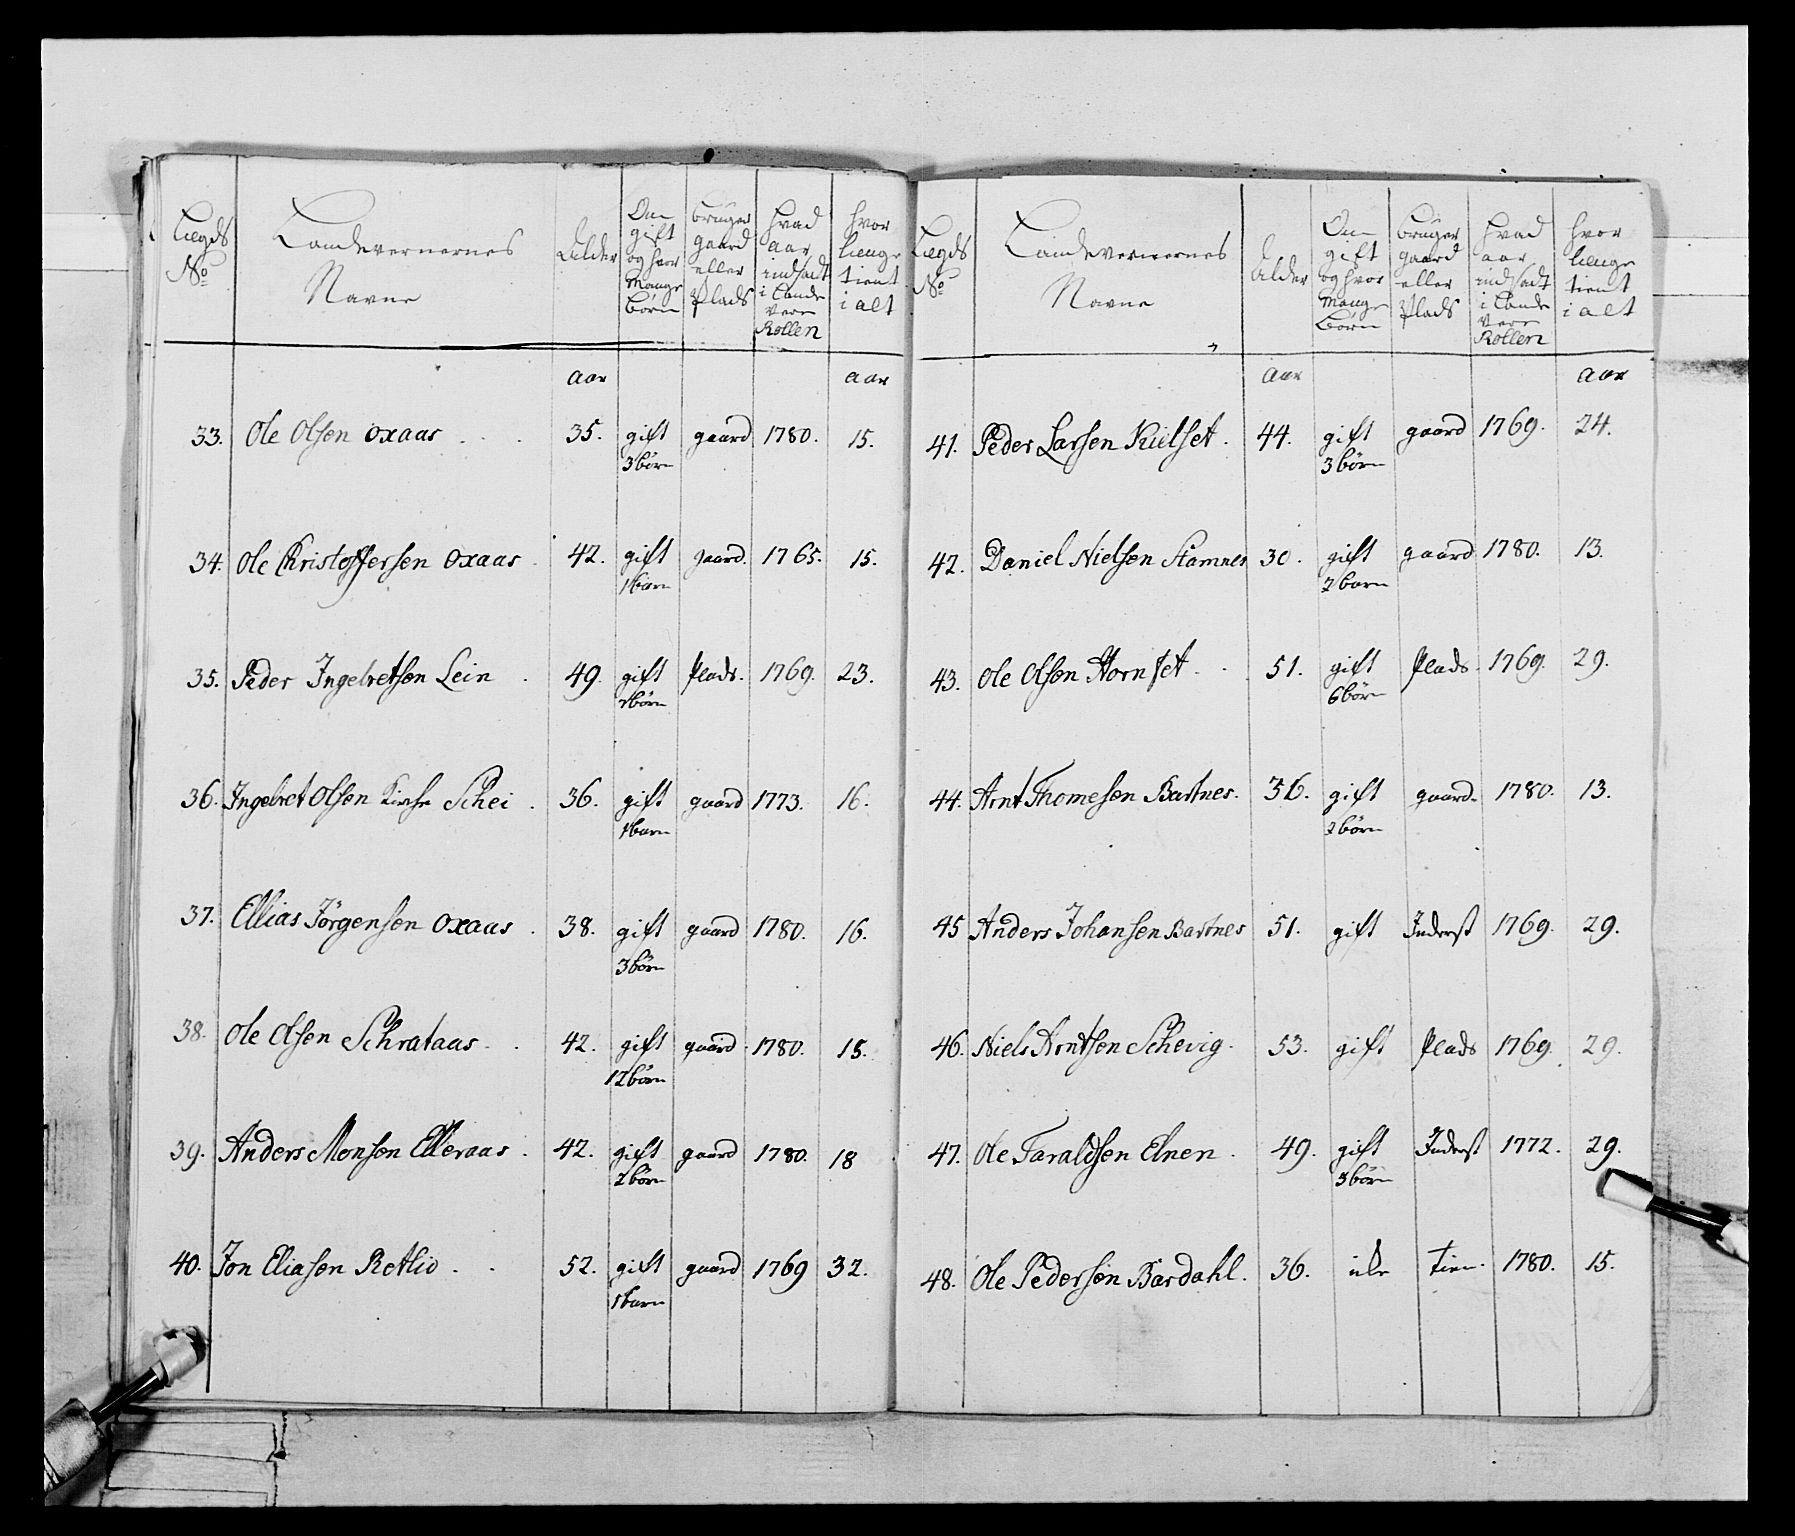 Lægds No | Landevernernes Navne | Alder | Om gift og hvor Mange Børn | bruger gaard eller Plads | Hvad aar indsadt i Lande Vern Rollen | hvor længe tient i alt
aar | aar
33. Ole Olsen Oxaas . . . 35. gift 3 børn gaard 1780. 15.
34. Ole Christoffersen Oxaas . 42. gift 1 barn gaard. 1765. 15.
35. Peder Ingebretsen Lein . 49. gift børn Plads. 1769. 23.
36. Ingebret Olsen Kirke Schei . 36. gift 1 barn gaard 1773. 16.
37. Ellias Jörgensen Oxaas . 38. gift 3 børn gaard 1780. 16.
38. Ole Olsen Schrataas . . 42. gift 12 børn gaard . 1780. 15.
39. Anders Monsen Elleraas . 42. gift 2 børn gaard 1780. 18
40. Jon Eliasen Rotlio . . 52. gift 1 barn gaard 1769 32.
Lægds No | Landevernernes Navne | Alder | Om gift og hvor Mange Børn | bruger gaard eller Plads | Hvad aar indsadt i Lande Vern Rollen | hvor længe tient i alt
Aar | Aar
41. Peder Larsen Kielset . 44. gift 3 børn gaard 1769. 24.
42. Daniel Nielsen Stamnes 30. gift 2 barn gaard 1780. 13.
43. Ole Olsen Hornset . . 51. gift 6 børn Plads . 1769. 29.
44. Arnt Thomesen Bartnes. 36. gift 2 børn gaard. 1780. 13.
45 Anders Johansen Bartnes 51. gift Inderst 1769. 29.
46. Niels Arntsen Schevig . 53. gift Plads 1769. 29.
47. Ole Taraldsen Elnen . 49. gift børn Inderst 1772. 29.
48. Ole Pedersen Bardahl. 36. tien. 1780. 15.